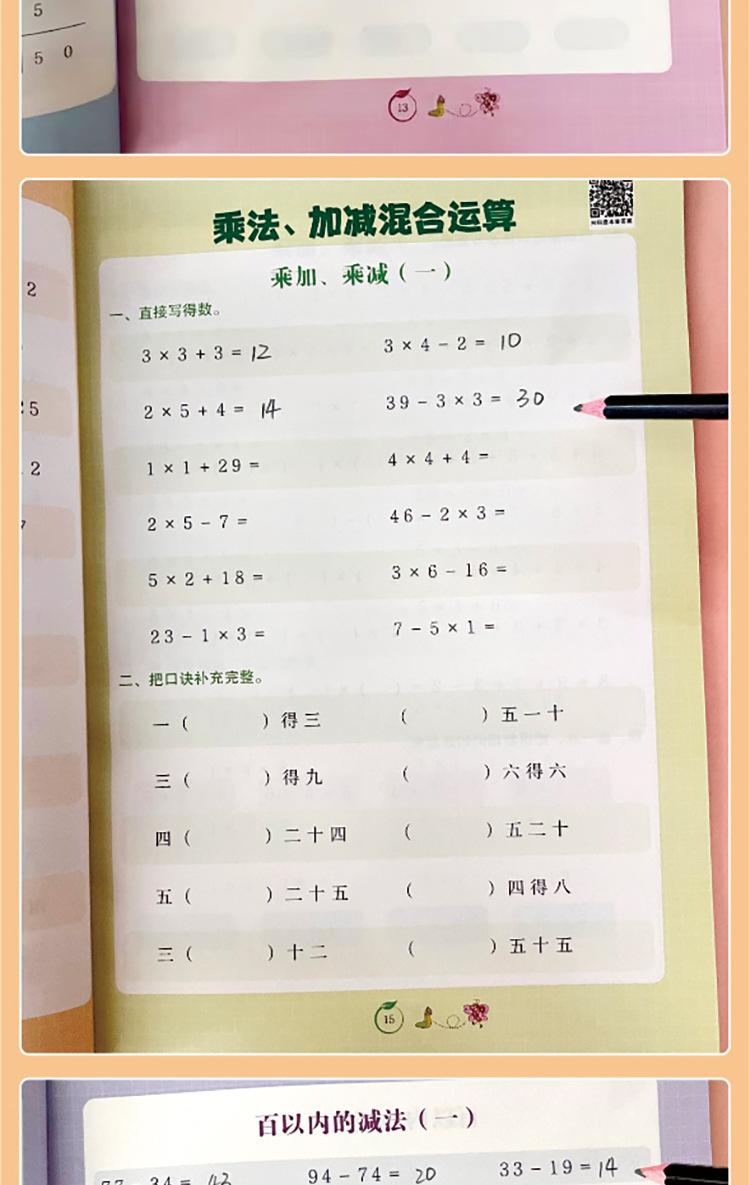 5
5 0
13
乘法、加减混合运算
乘加、乘减（一）
一、直接写得数。
2
3 × 3 + 3 = 12 3 × 4 - 2 = 10
5
2 × 5 + 4 = 14 39 - 3 × 3 = 30
2
1 × 1 + 29 = 4 × 4 + 4 =
2 × 5 - 7 = 46 - 2 × 3 =
5 × 2 + 18 = 3 × 6 - 16 =
23 - 1 × 3 = 7 - 5 × 1 =
二、把口诀补充完整。
一（ ）得三 （ ）五一十
三（ ）得九 （ ）六得六
四（ ）二十四 （ ）五二十
五（ ）二十五 （ ）四得八
三（ ）十二 （ ）五十五
15
百以内的减法（一）
77 - 34 = 43 94 - 74 = 20 33 - 19 = 14